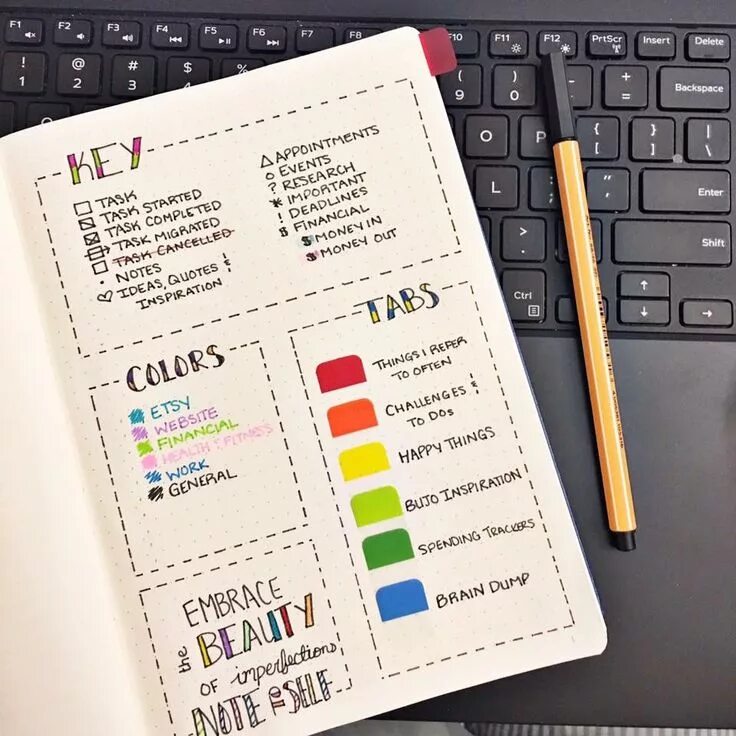 F1 F2 F3 F4 F5 F6 F7 F8 F10 F11 F12 PrtScr Insert Delete
! 1 @ 2 # 3 $ 4 % ( 9 ) 0 + = Backspace
O P { [ } ] | \
L " ' Enter
> . Shift
Ctrl
KEY
TASK
TASK STARTED
TASK COMPLETED
TASK MIGRATED
TASK CANCELLED
• NOTES
IDEAS, QUOTES &
INSPIRATION
△ APPOINTMENTS
○ EVENTS
? RESEARCH
* IMPORTANT
! DEADLINES
$ FINANCIAL
$ MONEY IN
$ MONEY OUT
COLORS
ETSY
WEBSITE
FINANCIAL
HEALTH & FITNESS
WORK
GENERAL
TABS
THINGS I REFER
TO OFTEN
CHALLENGES &
TO DOs
HAPPY THINGS
BUJO INSPIRATION
SPENDING TRACKERS
BRAIN DUMP
EMBRACE
the BEAUTY
OF imperfections
NOTE to SELF